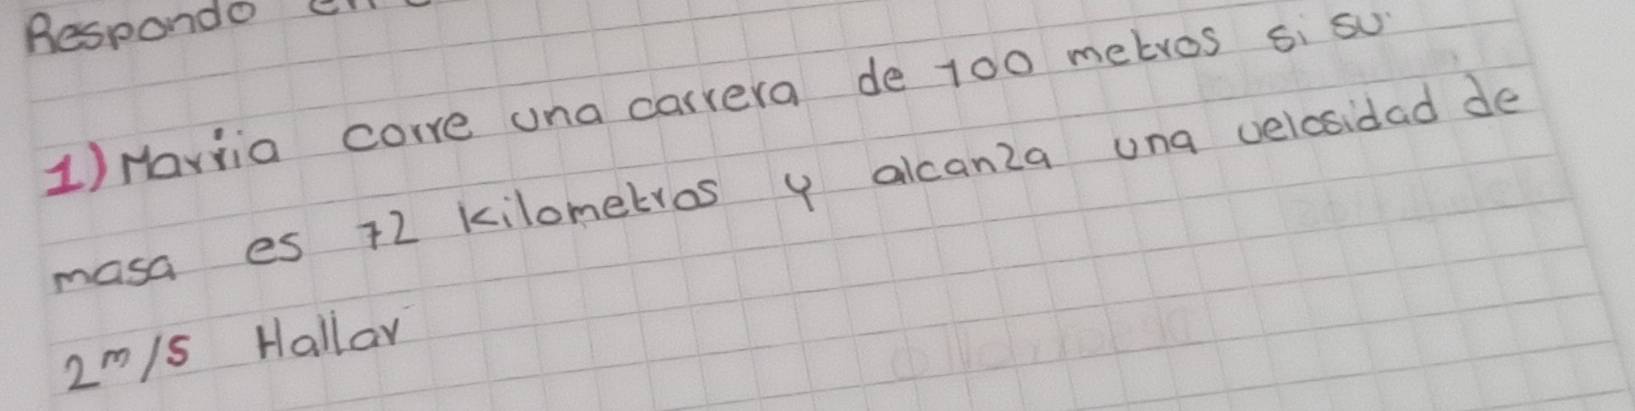 Respondo
1) Marria corre una carrera de 100 metros si su
masa es 72 kilometros y alcanza una velosidad de
2m/s Hallar